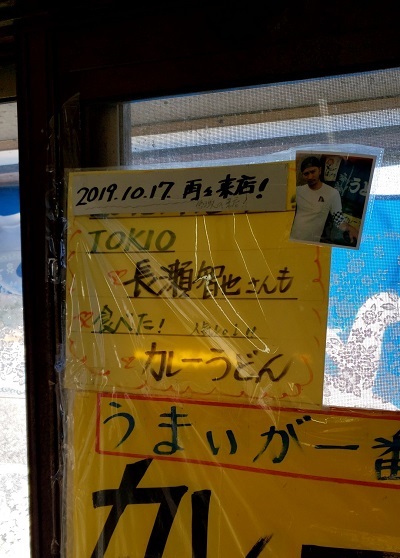 2019.10.17. 再々来店!
TOKIO
長瀬智也さんも
食べた!
カレーうどん
うまいが一番
カレー